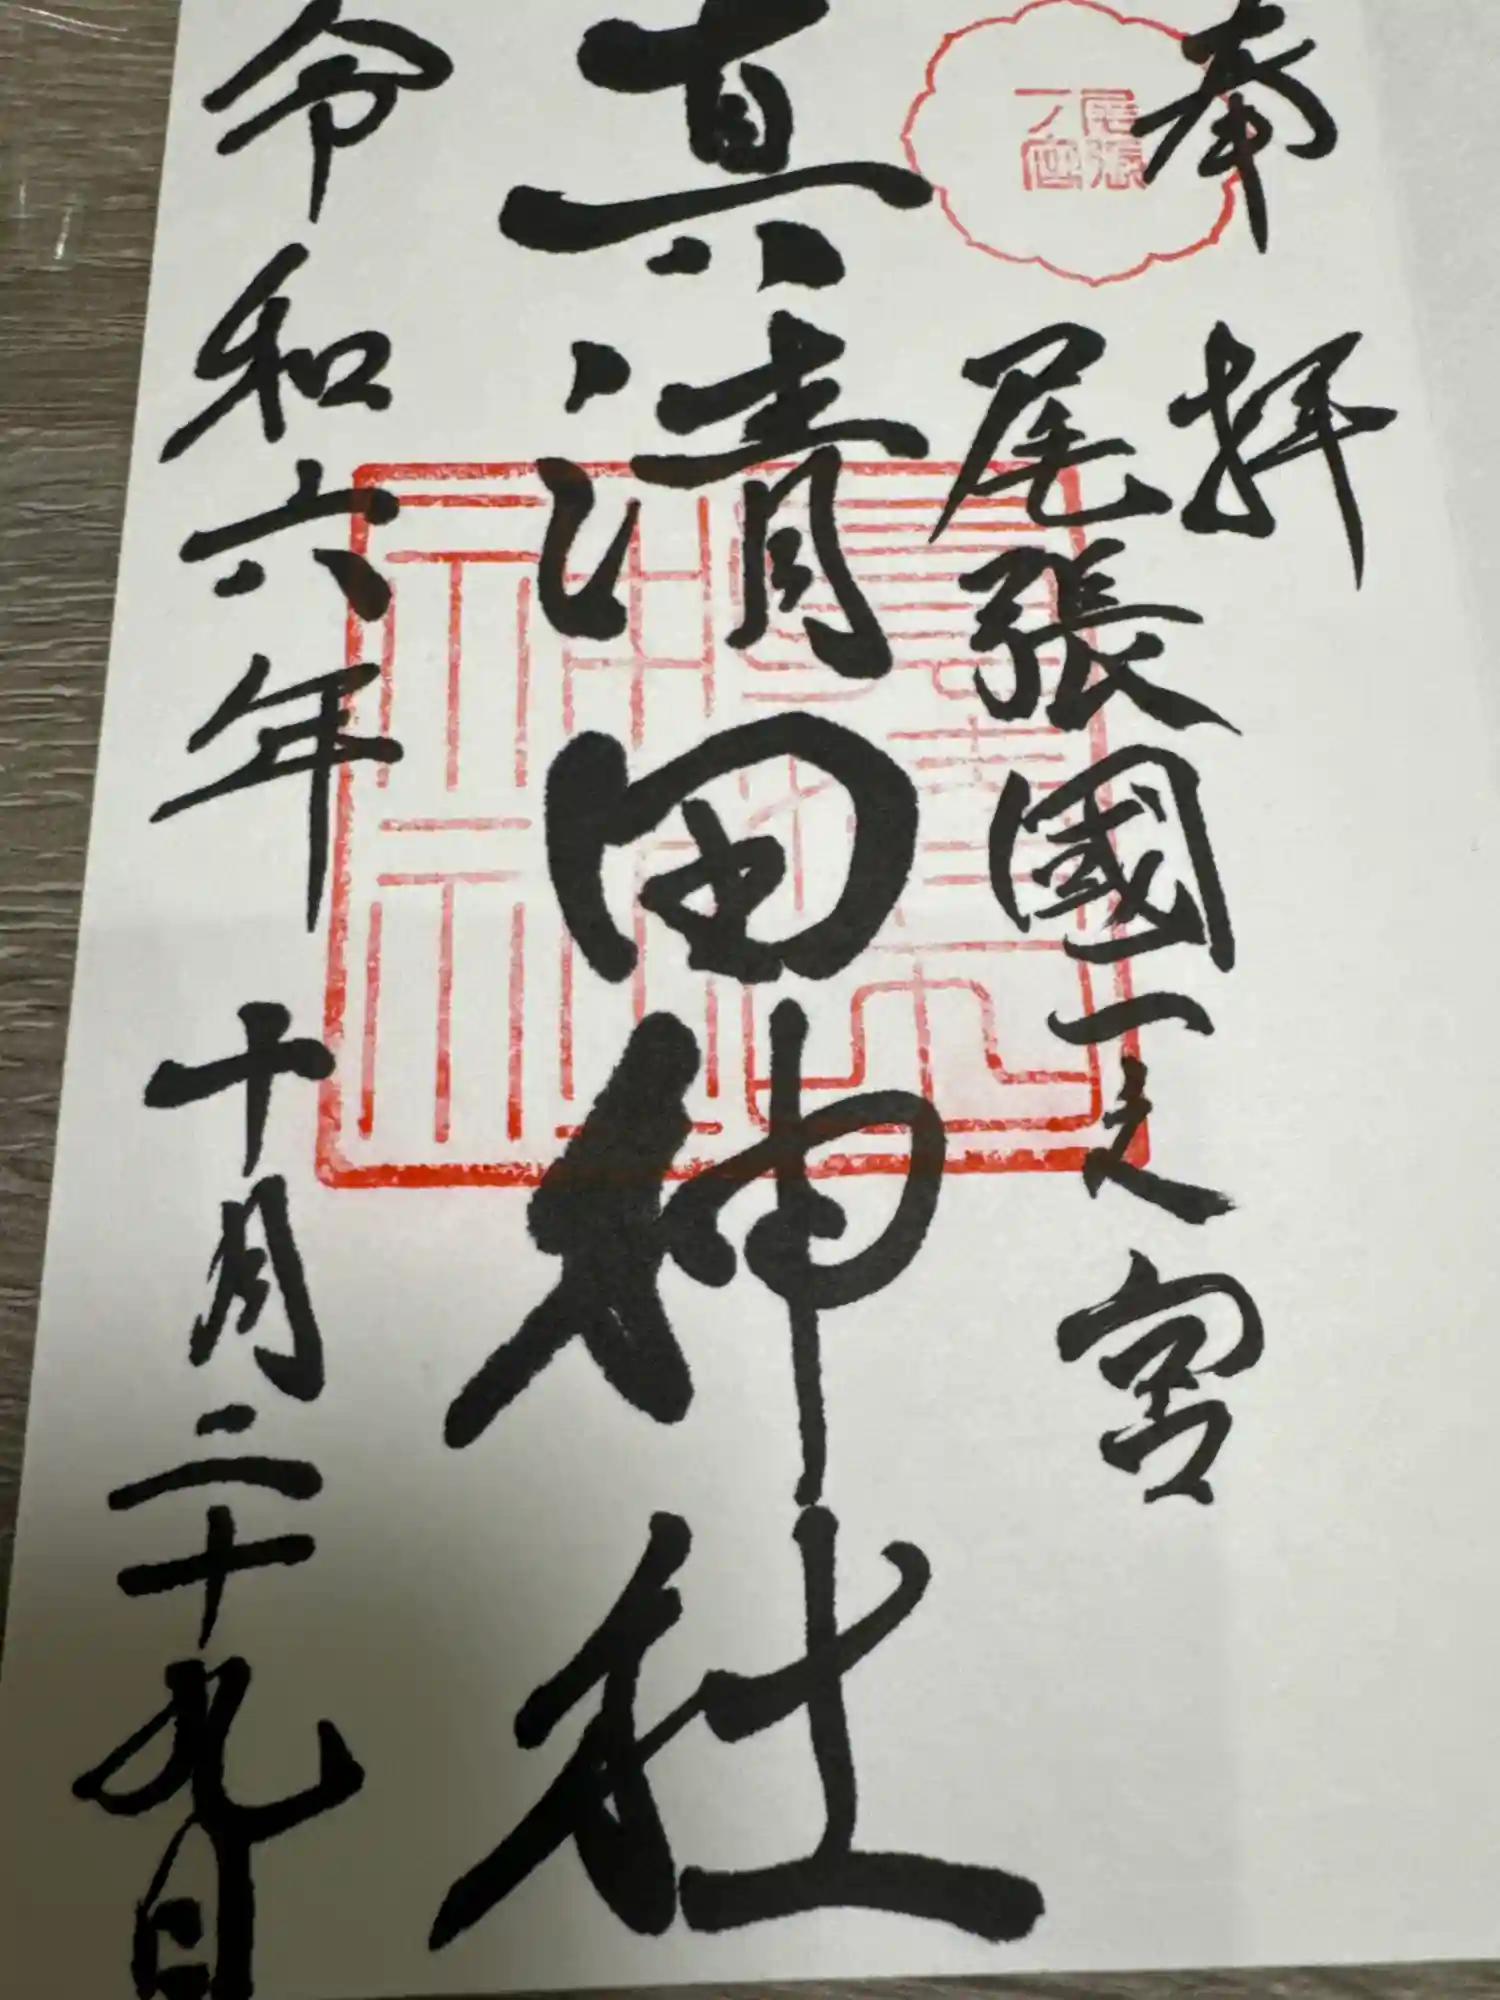 奉拝
尾張國一之宮
真清田神社
令和六年十月二十九日
尾張
一宮